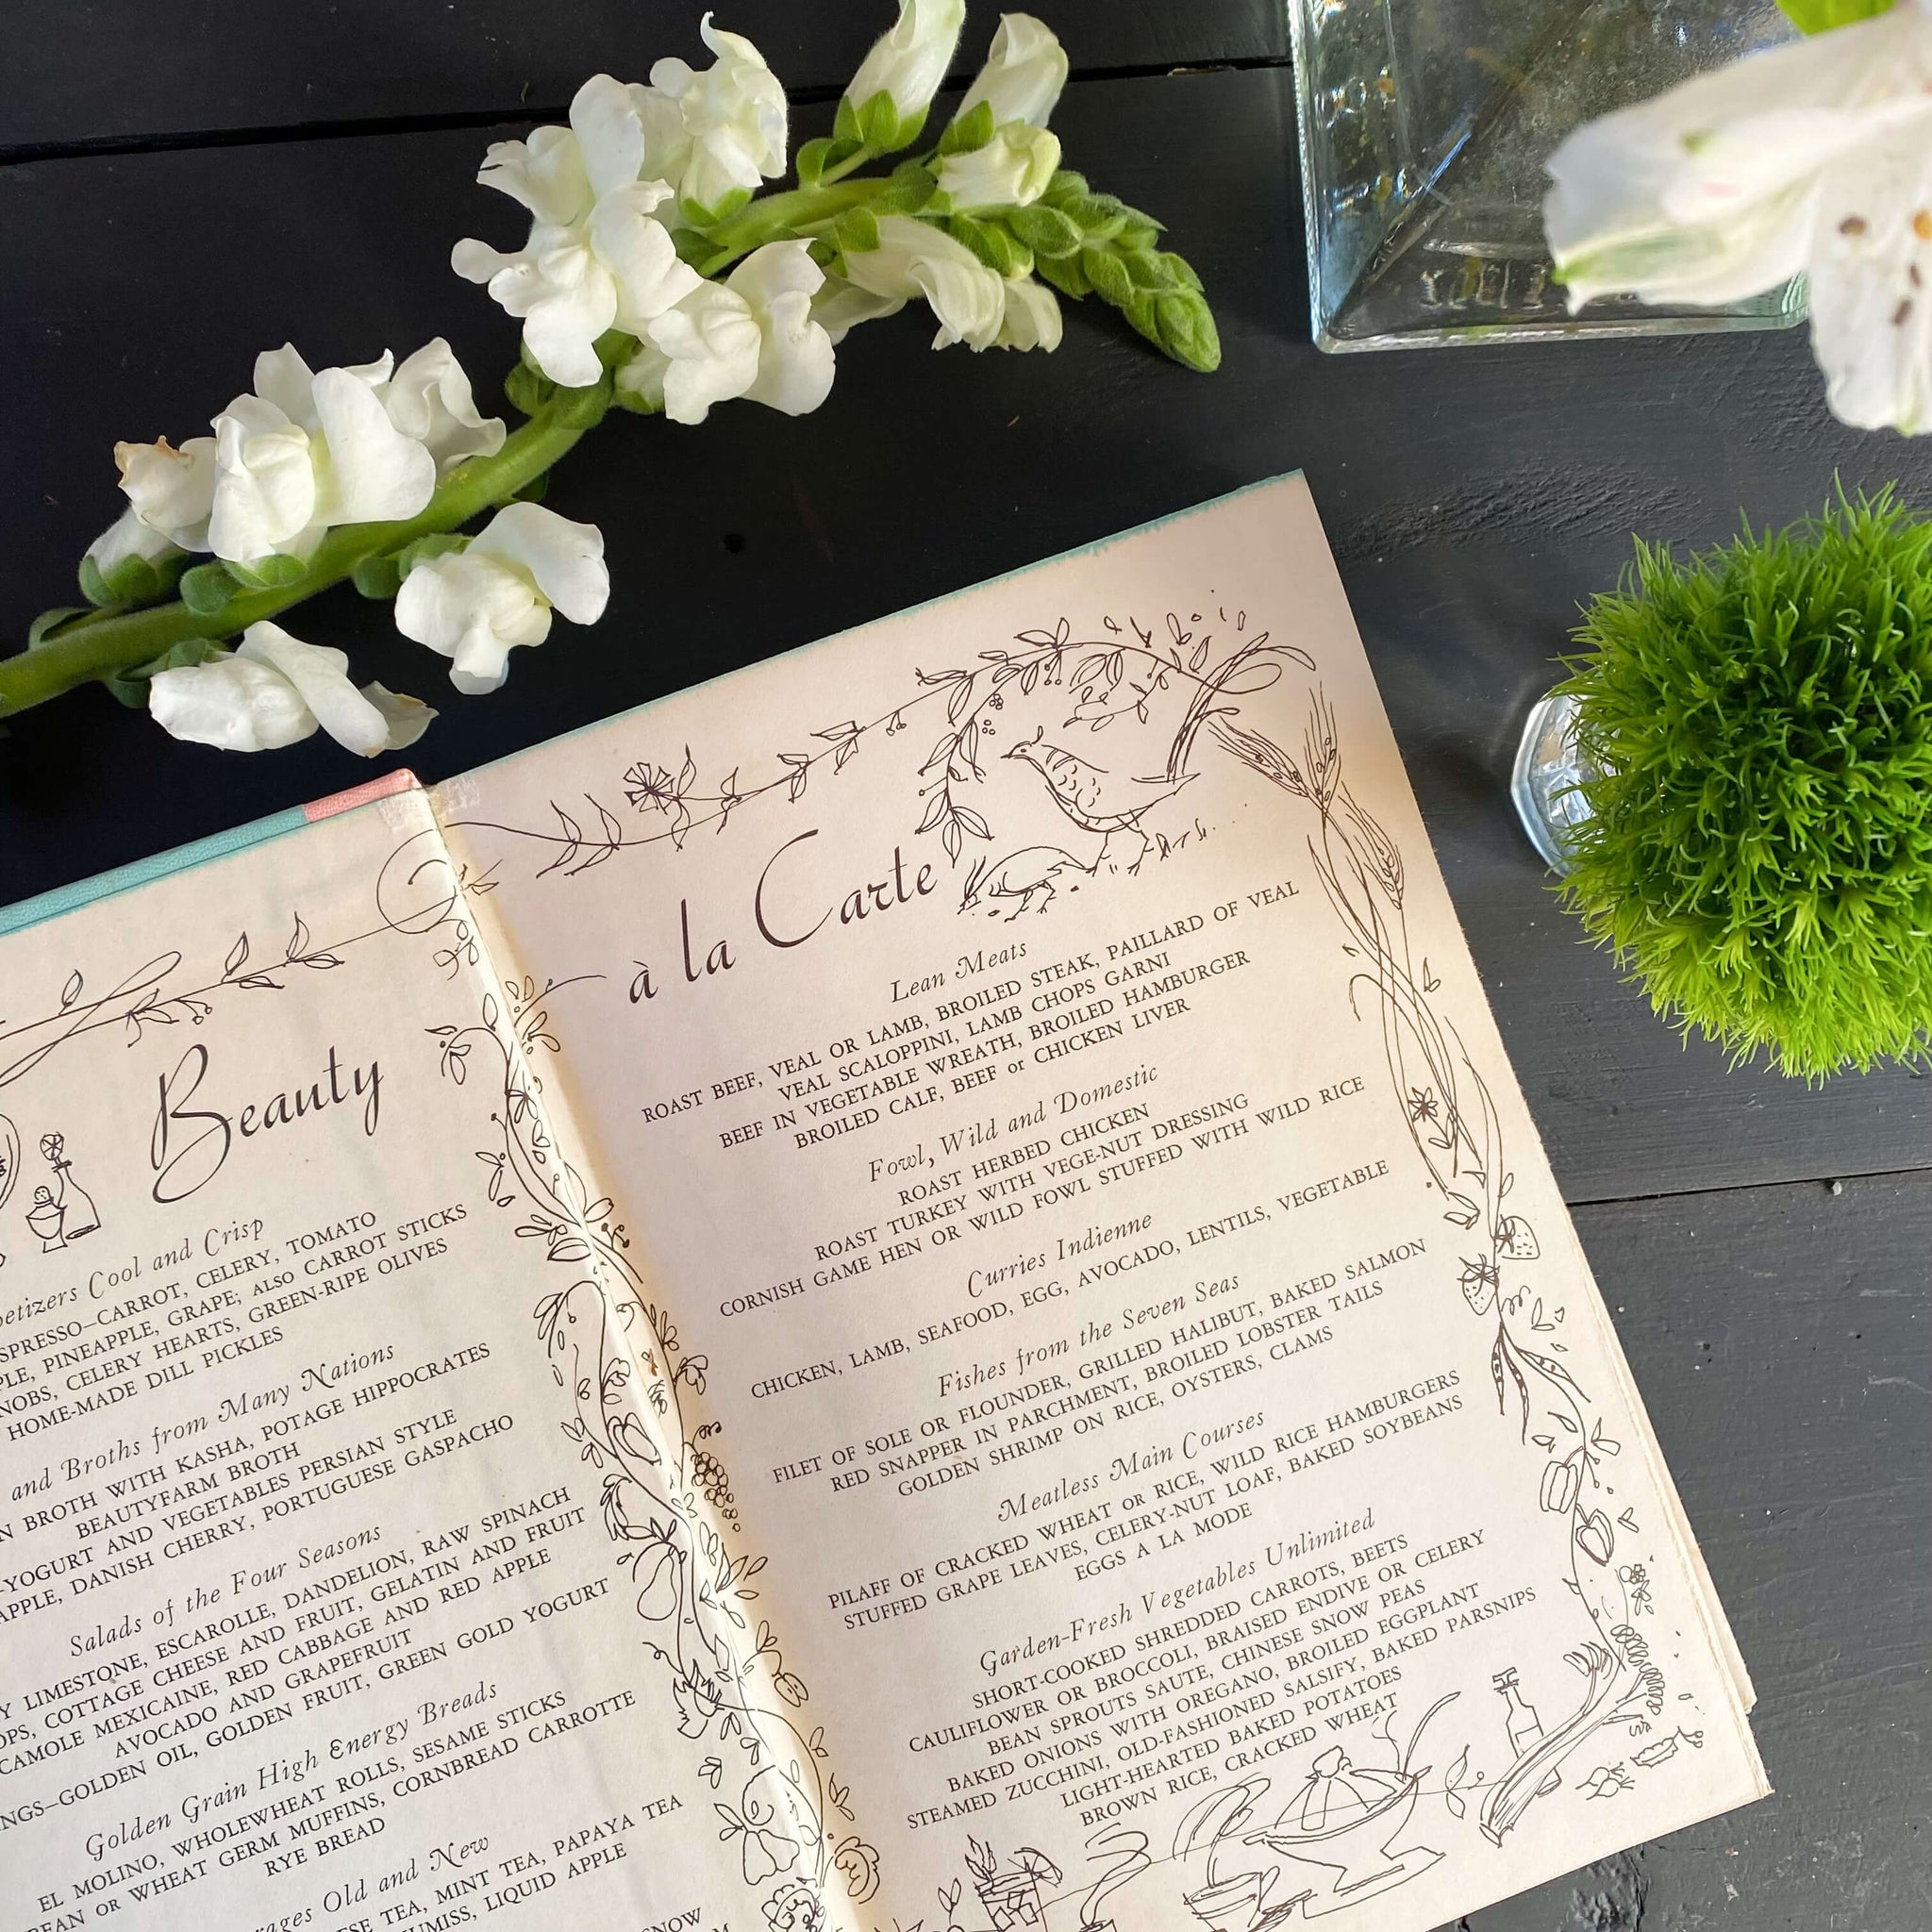 Beauty
Cool and Crisp
CARROT, CELERY, TOMATO
PINEAPPLE, GRAPE; ALSO CARROT STICKS
CELERY HEARTS, GREEN-RIPE OLIVES
HOME-MADE DILL PICKLES
and Broths from Many Nations
BROTH WITH KASHA, POTAGE HIPPOCRATES
BEAUTYFARM BROTH
YOGURT AND VEGETABLES PERSIAN STYLE
APPLE, DANISH CHERRY, PORTUGUESE GASPACHO
Salads of the Four Seasons
LIMESTONE, ESCAROLLE, DANDELION, RAW SPINACH
COTTAGE CHEESE AND FRUIT, GELATIN AND FRUIT
MEXICAINE, RED CABBAGE AND RED APPLE
AVOCADO AND GRAPEFRUIT
GOLDEN OIL, GOLDEN FRUIT, GREEN GOLD YOGURT
Golden Grain High Energy Breads
EL MOLINO, WHOLEWHEAT ROLLS, SESAME STICKS
OR WHEAT GERM MUFFINS, CORNBREAD CARROTTE
RYE BREAD
Old and New
TEA, MINT TEA, PAPAYA TEA
LIQUID APPLE
SNOW
à la Carte
Lean Meats
ROAST BEEF, VEAL OR LAMB, BROILED STEAK, PAILLARD OF VEAL
VEAL SCALOPPINI, LAMB CHOPS GARNI
BEEF IN VEGETABLE WREATH, BROILED HAMBURGER
BROILED CALF, BEEF or CHICKEN LIVER
Fowl, Wild and Domestic
ROAST HERBED CHICKEN
ROAST TURKEY WITH VEGE-NUT DRESSING
CORNISH GAME HEN OR WILD FOWL STUFFED WITH WILD RICE
Curries Indienne
CHICKEN, LAMB, SEAFOOD, EGG, AVOCADO, LENTILS, VEGETABLE
Fishes from the Seven Seas
FILET OF SOLE OR FLOUNDER, GRILLED HALIBUT, BAKED SALMON
RED SNAPPER IN PARCHMENT, BROILED LOBSTER TAILS
GOLDEN SHRIMP ON RICE, OYSTERS, CLAMS
Meatless Main Courses
PILAFF OF CRACKED WHEAT OR RICE, WILD RICE HAMBURGERS
STUFFED GRAPE LEAVES, CELERY-NUT LOAF, BAKED SOYBEANS
EGGS A LA MODE
Garden-Fresh Vegetables Unlimited
SHORT-COOKED SHREDDED CARROTS, BEETS
CAULIFLOWER OR BROCCOLI, BRAISED ENDIVE OR CELERY
BEAN SPROUTS SAUTE, CHINESE SNOW PEAS
BAKED ONIONS WITH OREGANO, BROILED EGGPLANT
STEAMED ZUCCHINI, OLD-FASHIONED SALSIFY, BAKED PARSNIPS
LIGHT-HEARTED BAKED POTATOES
BROWN RICE, CRACKED WHEAT